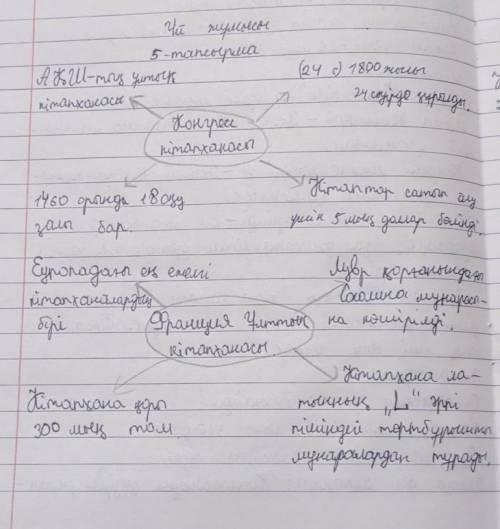 Үй жұмысы
5-тапсырма
АҚШ-тың ұлттық
кітапханасы
(24 с) 1800 жылы
24 сәуірде құрылды.
Конгресс
кітапханасы
1460 орындық 18 оқу
залы бар.
Кітаптар сатып алу
үшін 5 мың доллар бөлінді.
Еуропадағы ең ежелгі
кітапханалардың
бірі
Лувр қорғанындағы
мұнарасы-
на көшірілді.
Франция Ұлттық
кітапханасы
Кітапхана қоры
300 мың том.
Кітапхана ла-
тынның „L" әрпі
пішіндей төртбұрышты
мұнаралардан тұрады.